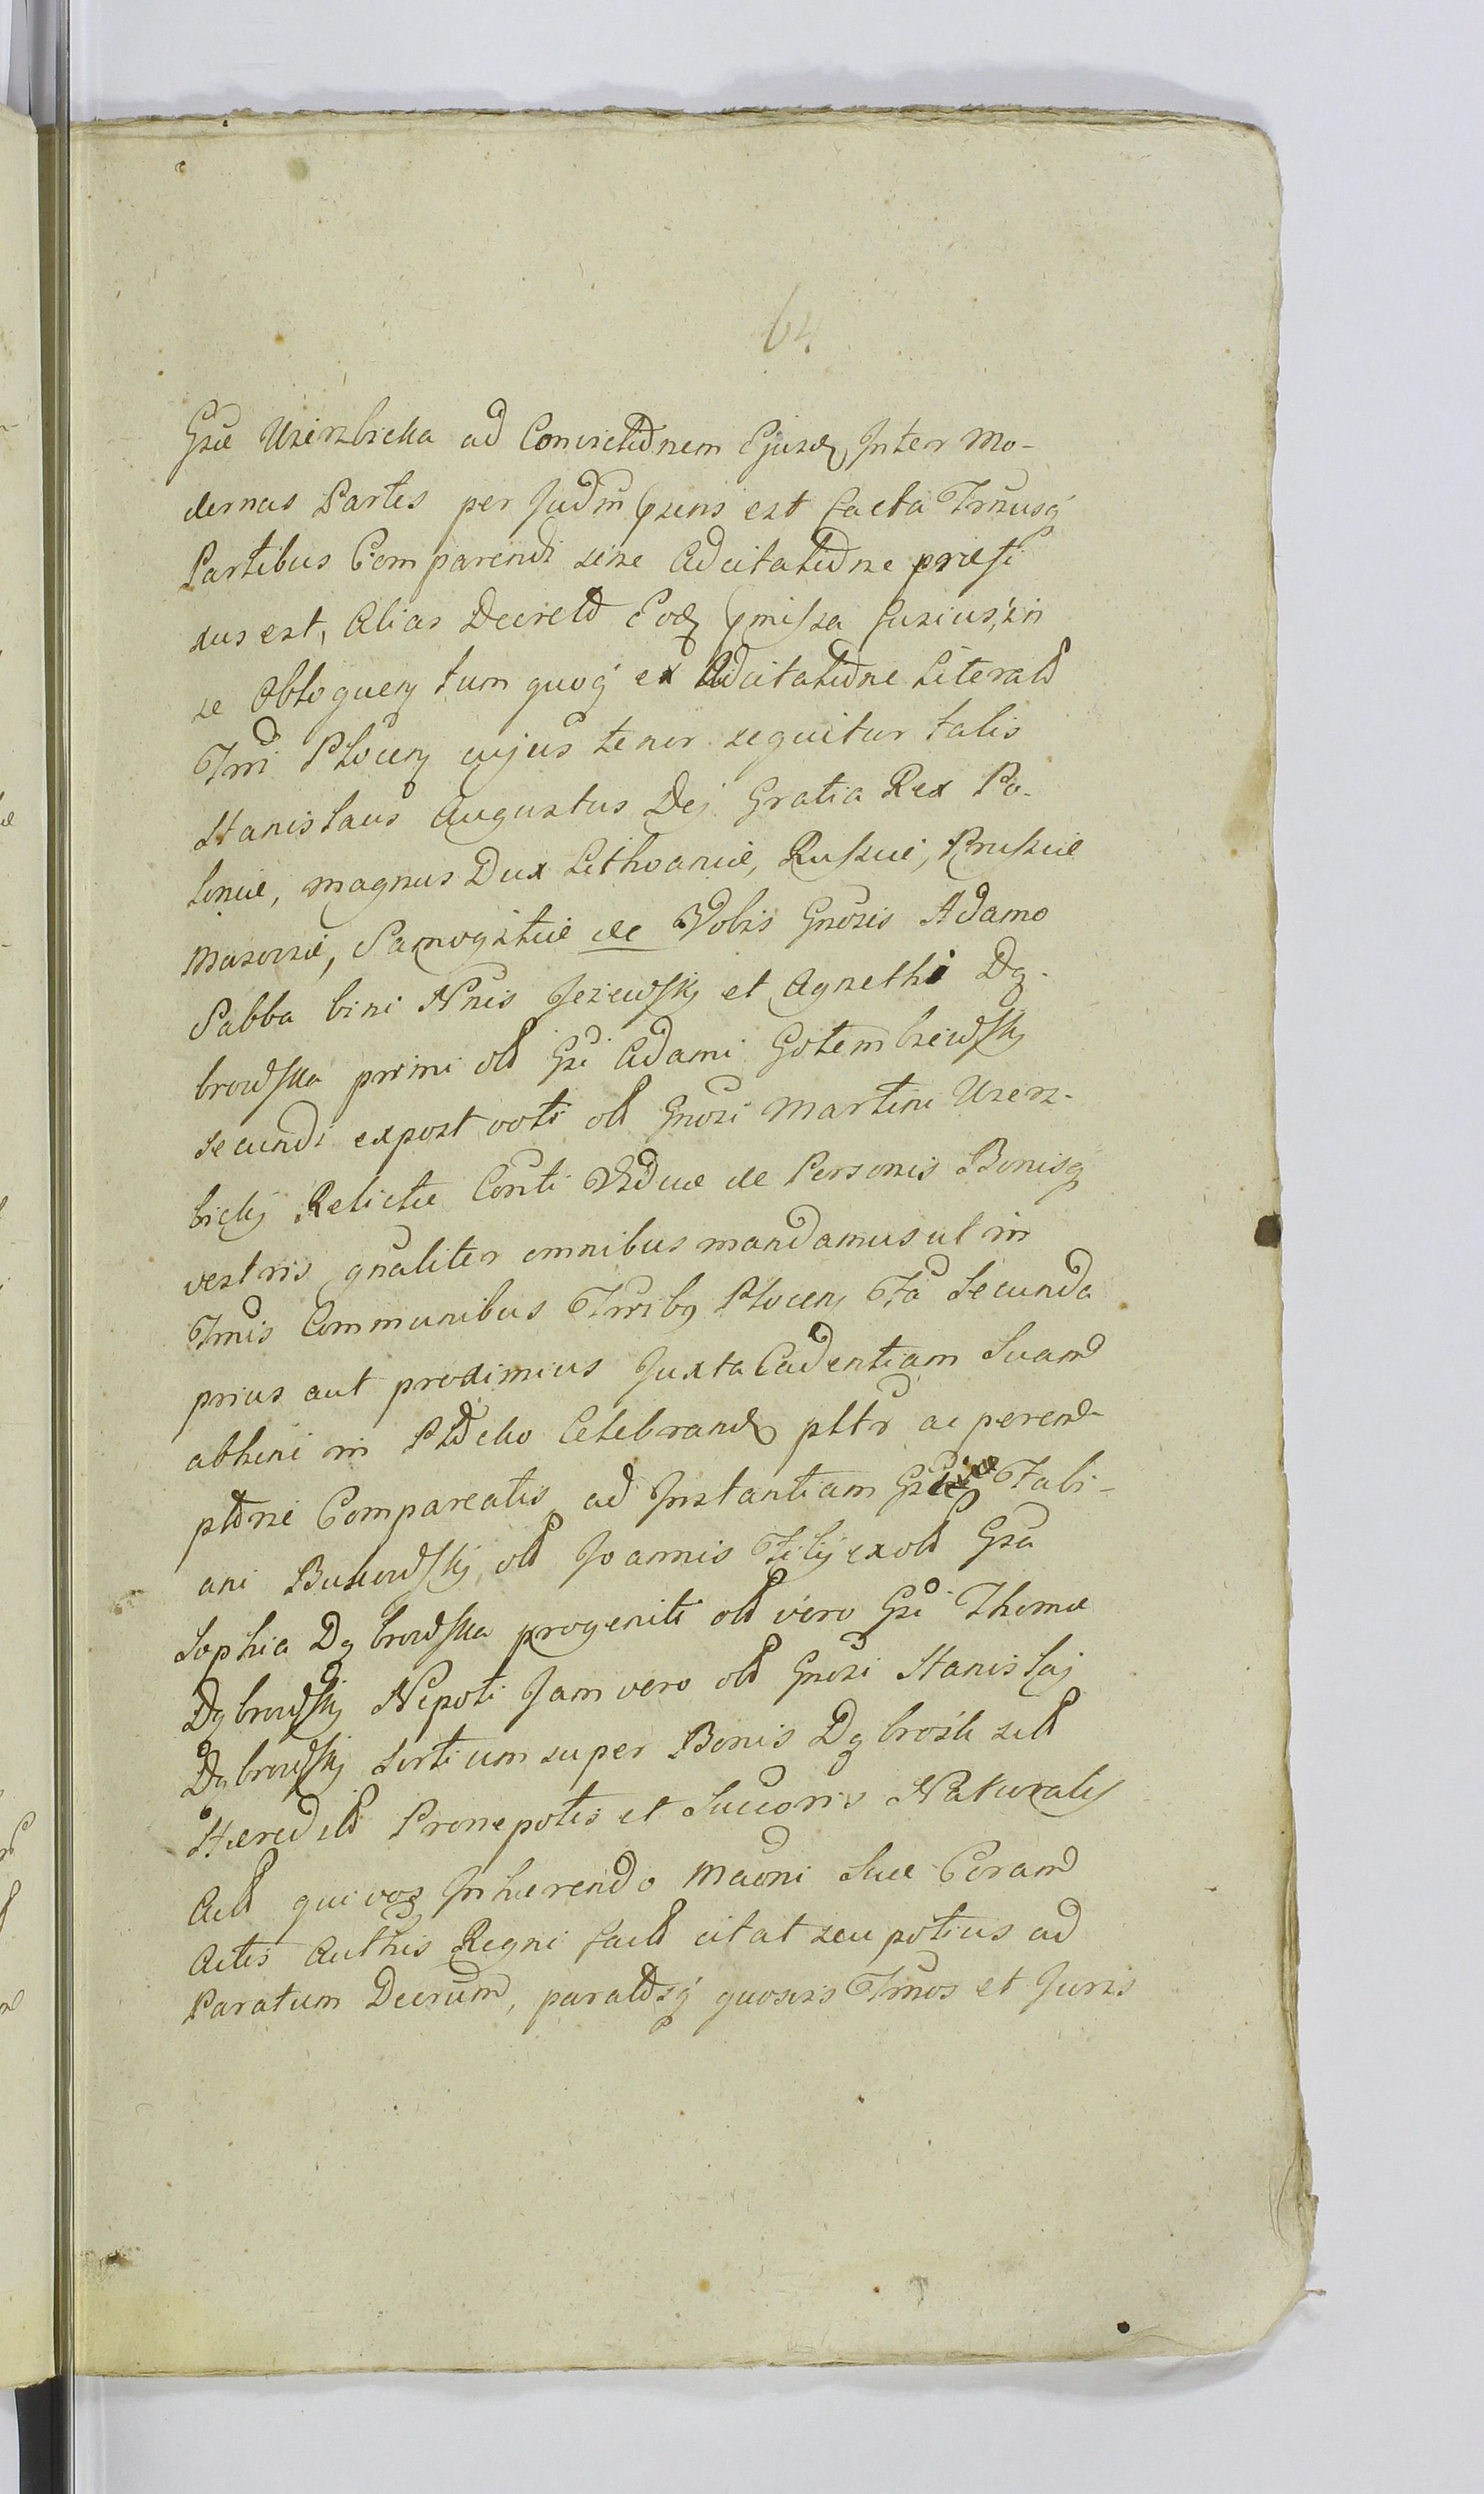 64
Gsæ Uzierzbicka ad Convictiõnem Ejusd Inter Mo-
dernas Partes per Judm psens est facta Trnusq
Partibus Comparendi sine Adcitatiõne præfi
xus est, Alias Decreto Eod pmissa fusius, in
se Obloquen tum quoq ex Adcitatiõne Literali
Trri Plocen cujus tenor sequitur talis
Stanislaus Augustus Dej Gratia Rex Po-
loniæ, Magnus Dux Lithvaniæ, Russiæ, Prussiæ
Masoviæ, Samogitiæ &c Vobis Gnosis Adamo
Sabba bini Nnis Jeziewskj et Agnethi Dą-
browska primi olt Gsi Adami Gotembiewskj
Secundi expost voti olt Gnosi Martini Uzierz-
bickj Relictæ Conti Viduæ de Personis Bonisq
vestris gnaliter omnibus mandamus ut in
Trnis Communibus Trribq Plocen Fa Secunda
prius aut proximius Juxta Cadentiam Suam
abhinc in Plocko Celebrand pltr ac peremp-
ptrie Compareatis ad Instantiam Gsi Fabi-
ani Bukowskj, olt Joannis Filij ex olt Gsa
Sophia Dąbrowska progeniti olt vero Gsi Thomæ
Dąbrowskj Nepoti Jam vero olt Gnosi Stanislaj
Dąbrowskj Sortium super Bonis Dąbrosk sitt
Hæreditt Pronepotis et Succoris Naturalis
Actt qui vos Inhærendo Maoni Suæ Coram
Actis Authis Regni factt citat seu potius ad
Paratum Decrum, paratosq quosvis Trnos et Juris